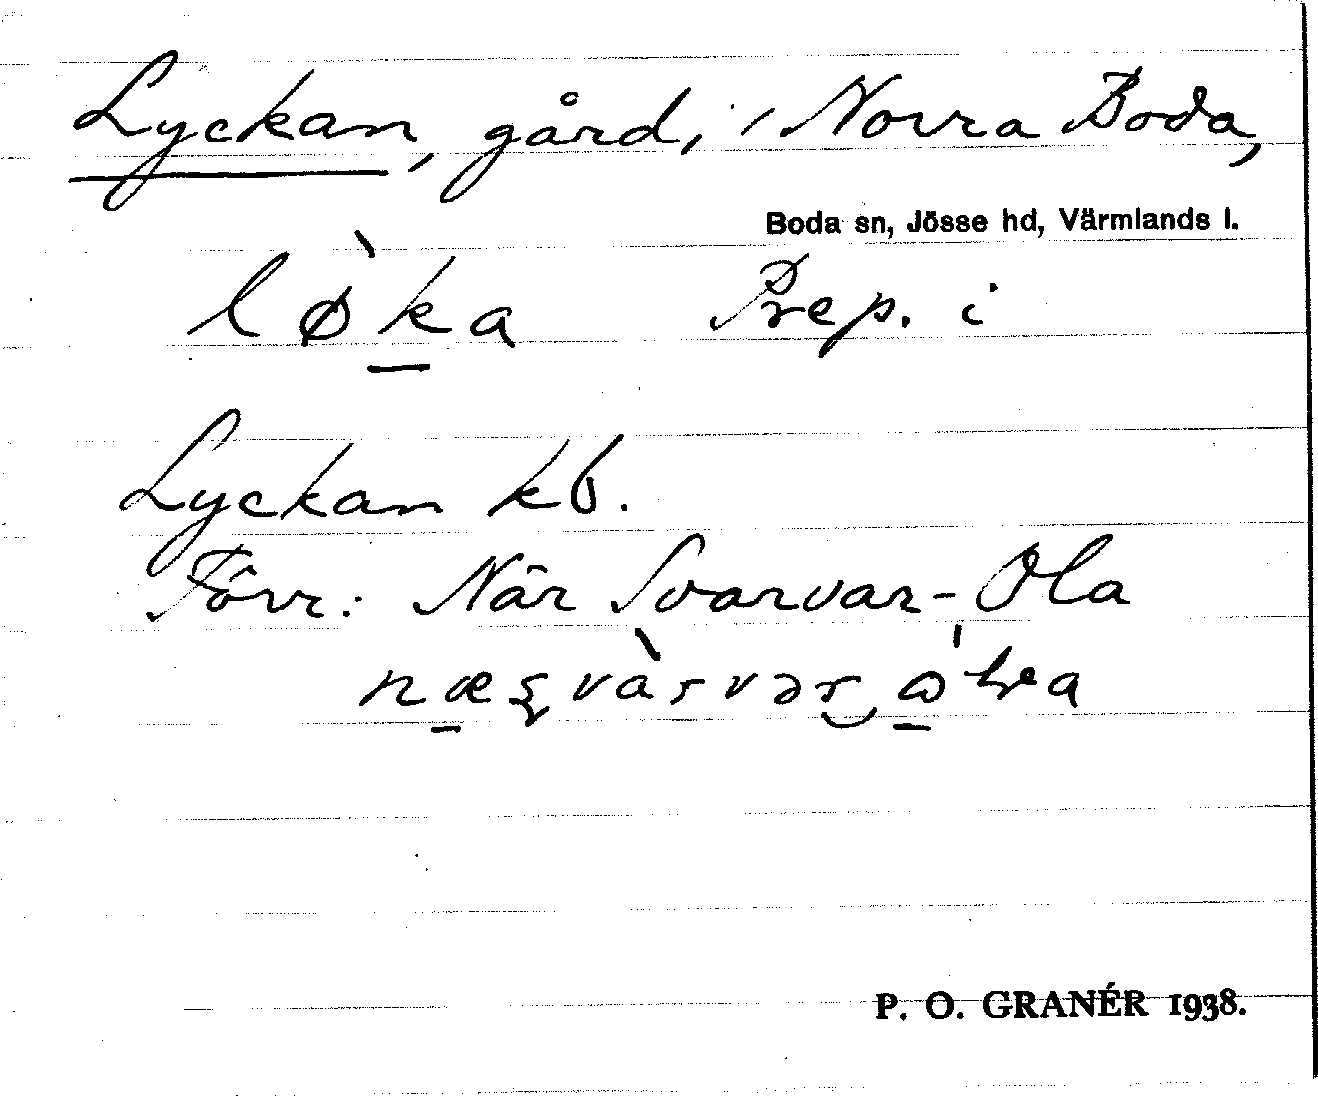 Lyckan, gård, i Norra Boda,
Boda sn, Jösse hd, Värmlands l.
lø̀k̠a Prep. i
Lyckan kb.
Förr: När Svarvar-Ola
P. O. GRANÉR 1938.